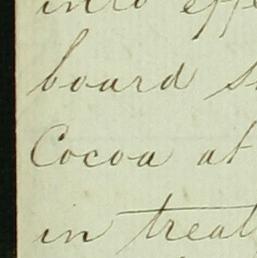 into effe
board s
Cocoa at
in treat